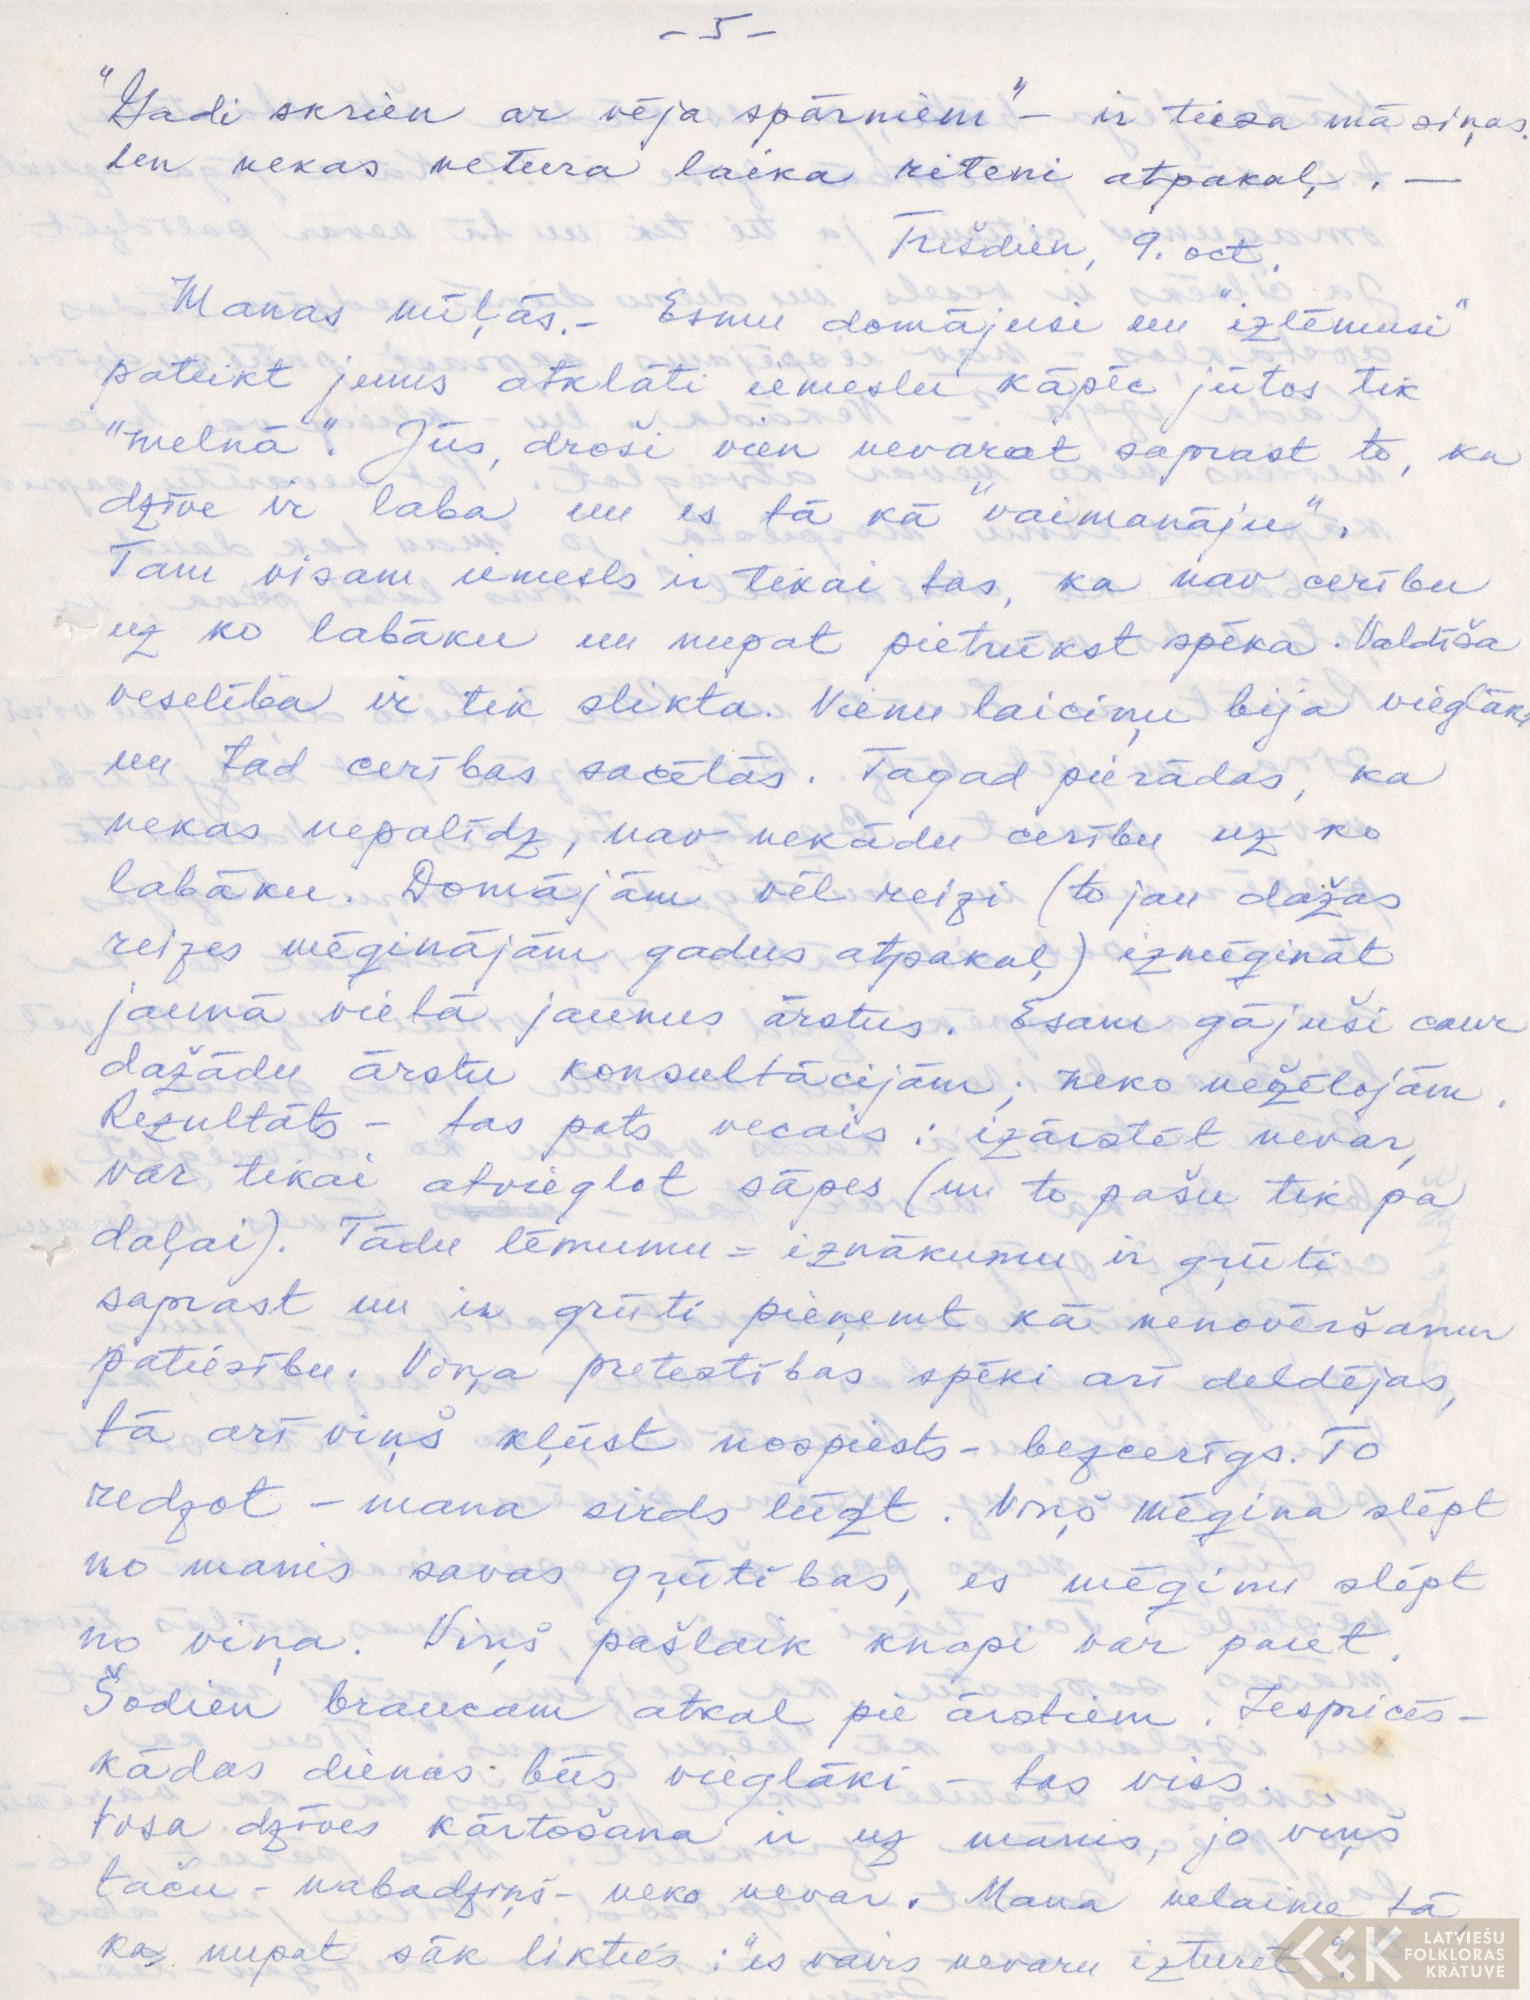 - 5 -
"Gadi skrien ar vēja spārniem" - ir tiesa māsiņas.
ten nekas netura laika riteni atpakaļ. —
Trešdien, 9. oct.
Manas mīļās. - Esmu domājusi un "izlēmusi"
pateikt jums atklāti iemeslu kāpēc jūtos tik
"melnā". Jūs, droši vien nevarat saprast to, ka
dzīve ir laba un es tā kā "vaimanāju".
Tam visam iemesls ir tikai tas, ka nav cerību
uz ko labāku un nupat pietrūkst spēka. Valdīša
veselība ir tik slikta. Vienu laiciņu bija vieglāk,
un tad cerības sacēlās. Tagad pierādas, ka
nekas nepalīdz, nav nekādu cerību uz ko
labāku. Domājām vēl reizi (to jau dažas
reizes mēģinājām gadus atpakaļ) izmēģināt
jaunā vietā jaunus ārstus. Esam gājuši caur
dažādu ārstu konsultācijām; neko nežēlojām.
Rezultāts - tas pats vecais: izārstēt nevar,
var tikai atvieglot sāpes (un to pašu tik pa
daļai). Tādu lēmumu = iznākumu ir grūti
saprast un ir grūti pieņemt kā nenovēršamu
patiesību. Viņa pretestības spēki arī deldējas,
tā arī viņš kļūst nospiests - bezcerīgs. To
redzot - mana sirds lūzt. Viņš mēģina slēpt
no manis savas grūtības, es mēģinu slēpt
no viņa. Viņš pašlaik knapi var paiet.
Šodien braucam atkal pie ārstiem. Iespricēs -
kādas dienas būs vieglāki - tas viss.
Visa dzīves kārtošana ir uz manis, jo viņš
taču - nabadziņš - neko nevar. Mana nelaime tā,
ka nupat sāk likties: "es vairs nevaru izturēt".
LATVIEŠU
FOLKLORAS
KRĀTUVE